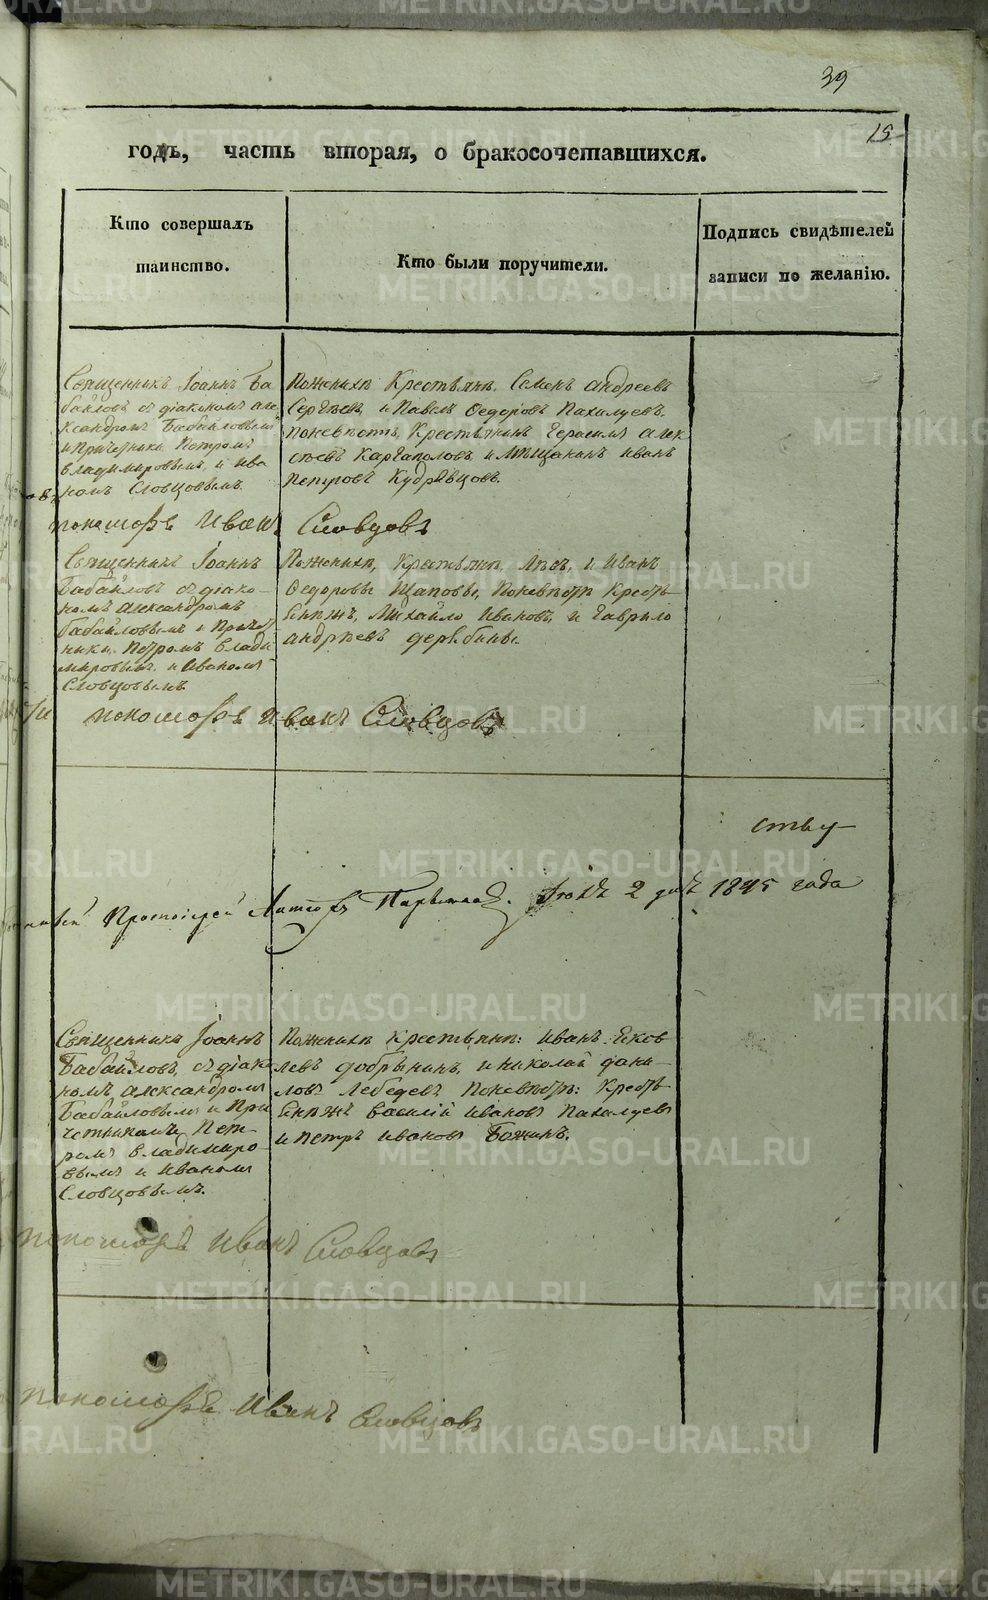 39
15
годъ, часть вторая, о бракосочетавшихся.
Кто совершалъ
таинство.
Кто были поручители.
Подпись свидѣтелей
записи по желанію.
Священникъ Іоаннъ Ба
байловъ съ діакономъ але
ксандромъ Бабайловымъ
и Причетники Петромъ
владимировымъ, и ива
номъ Словцовымъ.
Поженихѣ Крестьянъ, Семенъ андреевъ
Сергѣевъ, и Павелъ Ѳедоровъ Пахалуевъ,
поневѣстѣ, Крестьянинъ Герасимъ алек
сѣевъ Каргаполовъ и Мѣщанинъ иванъ
Петровъ Кудрявцовъ.
пономарь Иванъ Словцовъ
Священникъ Іоаннъ
Бабайловъ съ діако-
номъ александромъ
бабайловымъ и Причет
ники, Петромъ влади
мировымъ, и Иваномъ
Словцовымъ.
Поженихѣ, Крестьянъ, и Иванъ
Ѳедоровы Щаповы, Поневѣстѣ Кресть
янинъ, Михайло Ивановъ, и Гаврило
андрѣевъ дерябины.
пономарь Иванъ Словцовъ
Протоіерей 2 дня 1845 года
Священникъ Іоаннъ
Бабайловъ, съ діако
номъ александромъ
Бабайловымъ и При
четниками, Пет-
ромъ владимиро-
вымъ и Иваномъ
Словцовымъ.
Поженихѣ крестьянъ: иванъ Яков
левъ добрынинъ, и николай дани
ловъ Лебедевъ Поневѣстѣ: Кресть
янинъ василій ивановъ Пахалуевъ
и петръ ивановъ Божинъ.
пономарь Иванъ Словцовъ
пономарь Иванъ Словцовъ
METRIKI.GASO-URAL.RU